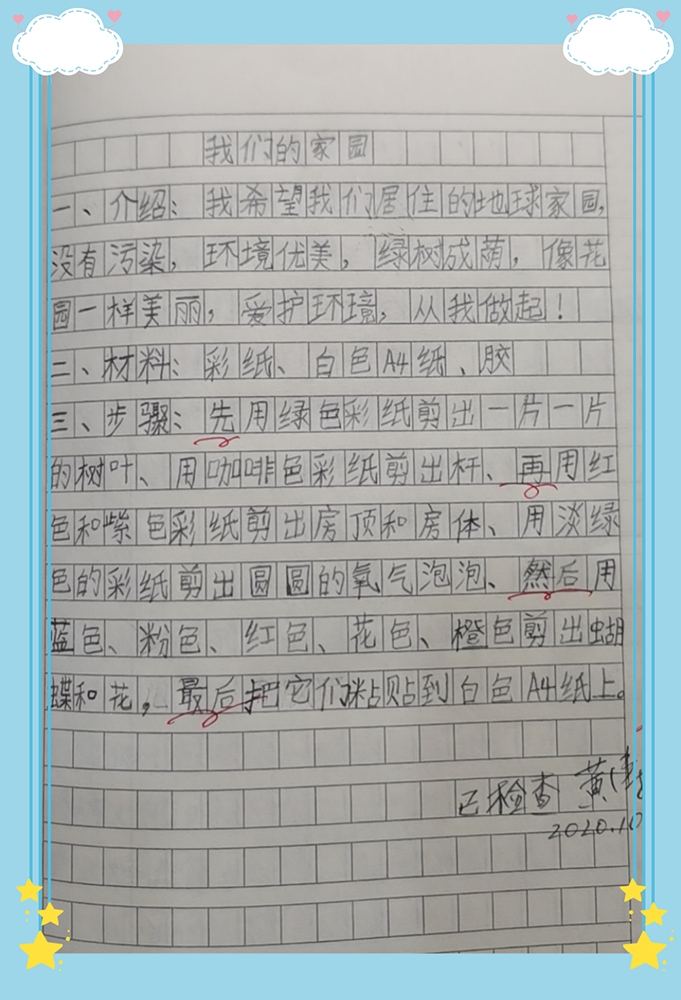 我们的家园
一、介绍：我希望我们居住的地球家园，
没有污染，环境优美，绿树成荫，像花
园一样美丽，爱护环境，从我做起！
二、材料：彩纸、白色A4纸、胶
三、步骤：先用绿色彩纸剪出一片一片
的树叶、用咖啡色彩纸剪出杆、再用红
色和紫色彩纸剪出房顶和房体、用淡绿
色的彩纸剪出圆圆的氧气泡泡、然后用
蓝色、粉色、红色、花色、橙色剪出蝴
蝶和花，最后把它们粘贴到白色A4纸上。
已检查 黄
2020.10